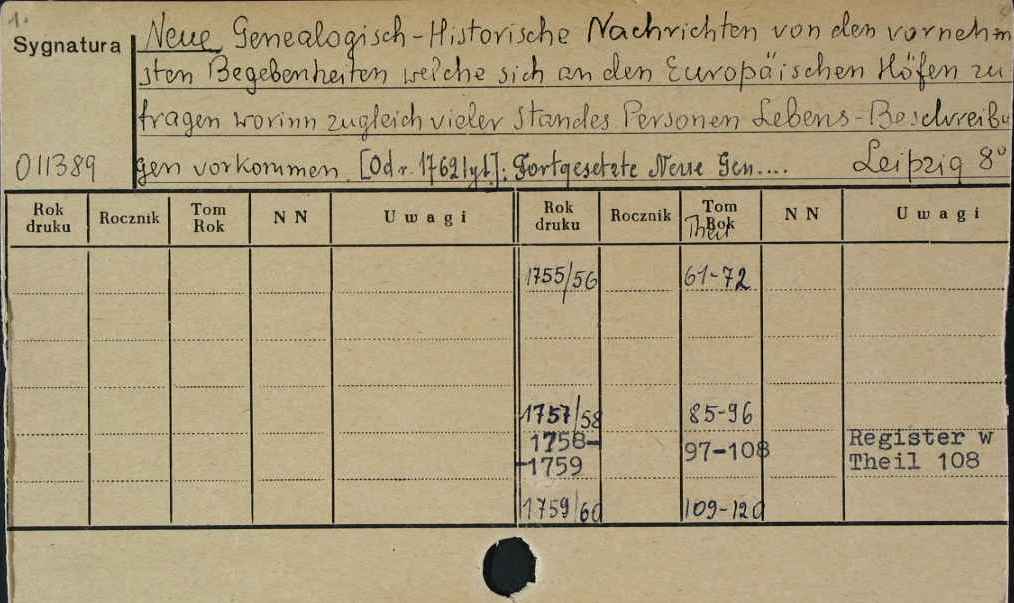 1.
Sygnatura
Neue Genealogisch-Historische Nachrichten von den vornehm
sten Begebenheiten welche sich an den Europäischen Höfen zu
tragen worinn zugleich vieler Standes Personen Lebens-Beschreibu
011389 gen vorkommen. [Od r. 1762 tyt]: Fortgesetzte Neue Gen.... Leipzig 8°
Rok druku Rocznik Tom Rok NN Uwagi Rok druku Rocznik Tom Rok Theil NN Uwagi
1755/56 61-72
1757/58 85-96
1758- 97-108 Register w
-1759 Theil 108
1759/60 109-120